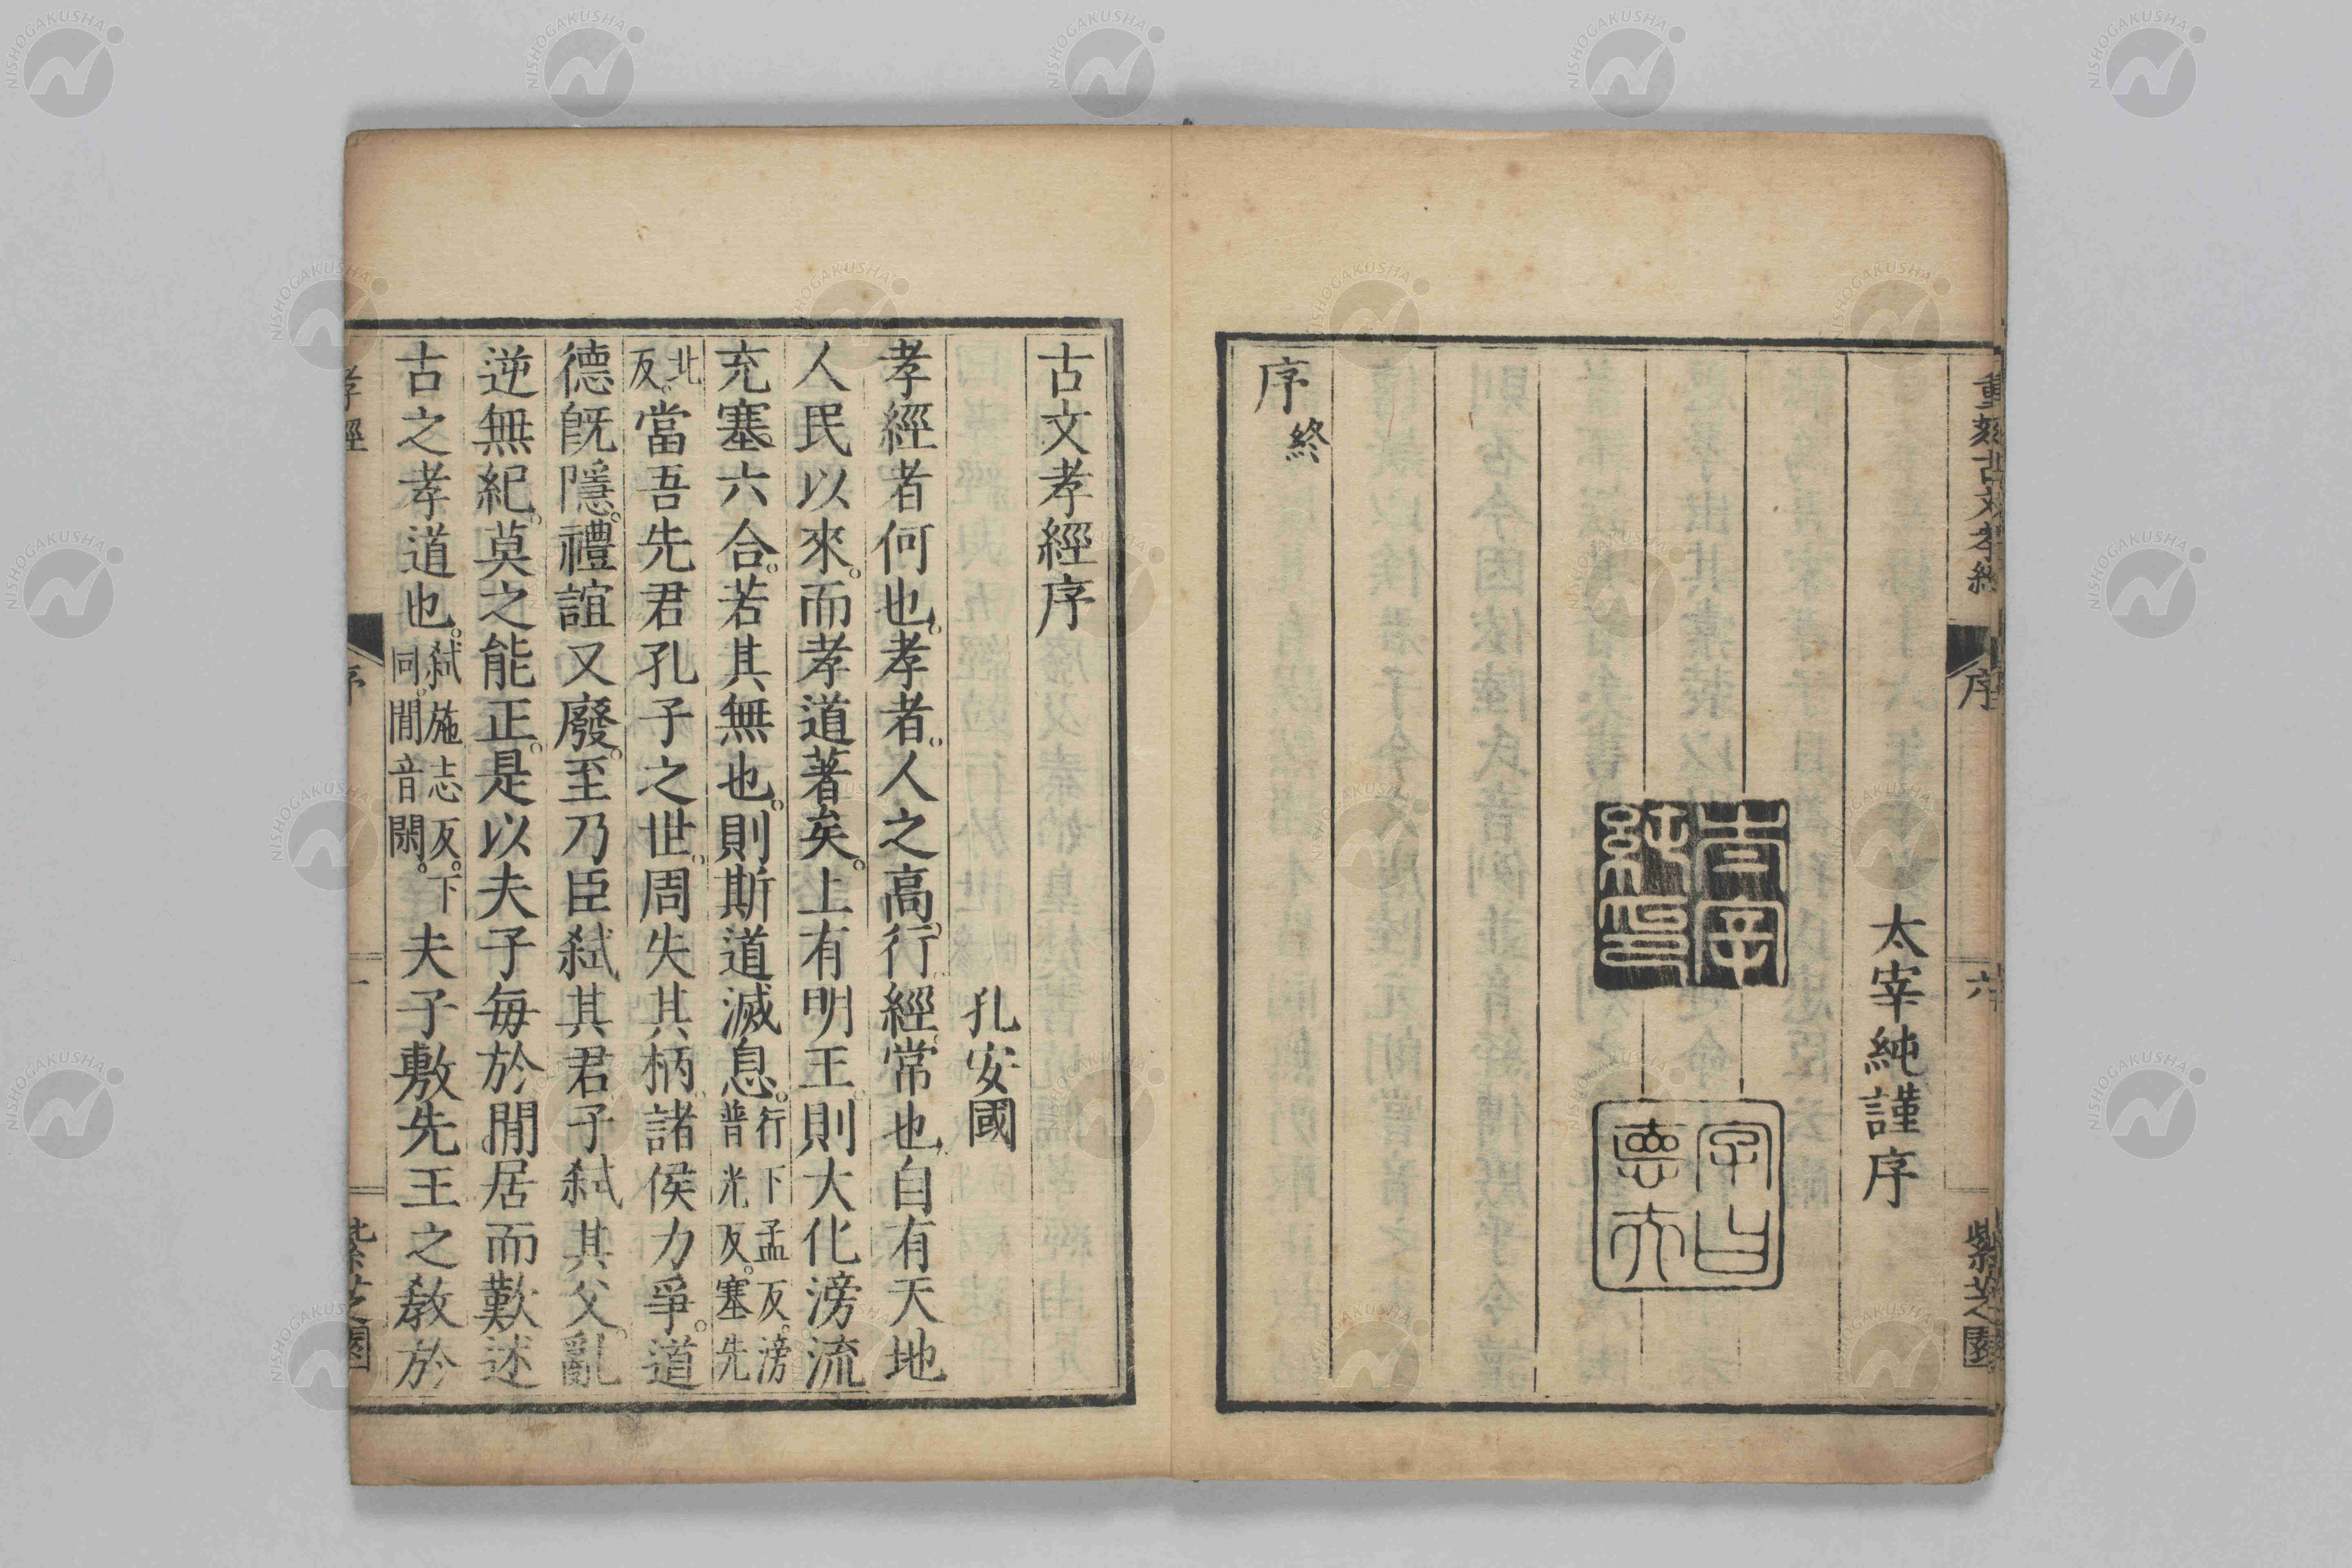 重刻古文孝經
序
六
紫芝園
太宰純謹序
太宰純印
字曰德夫
序終
古文孝經序
孔安國
孝經者何也。孝者。人之高行。經常也。自有天地
人民以來。而孝道著矣。上有明王。則大化滂流
充塞六合。若其無也。則斯道滅息。行下孟反。滂普光反。塞先
北反。當吾先君孔子之世。周失其柄。諸侯力爭。道
德既隱。禮誼又廢。至乃臣弑其君。子弑其父。亂
逆無紀。莫之能正。是以夫子每於閒居而歎述
古之孝道也。弑施志反。下同。閒音閑。夫子敷先王之敎於
孝經
序
一
紫芝園
NISHOGAKUSHA